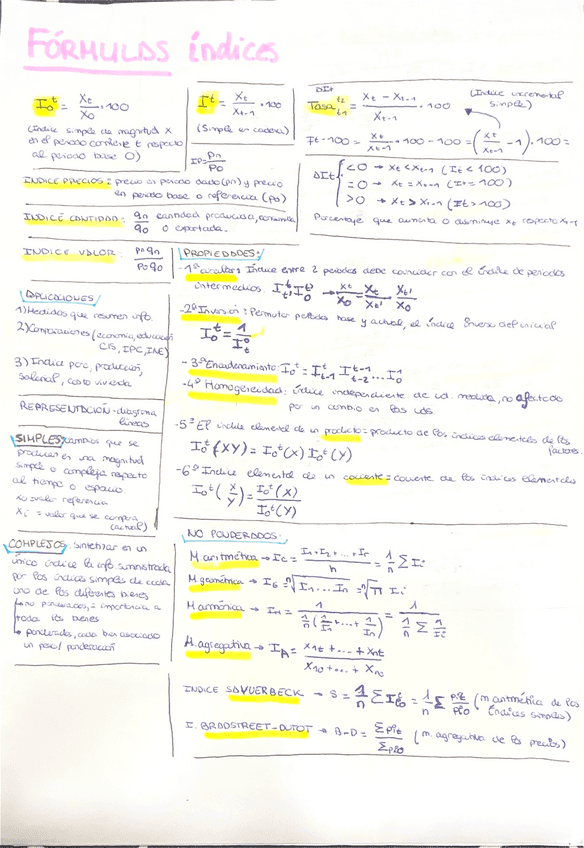 FÓRMULAS índices
I₀ᵗ = Xt/X₀ · 100
(Índice simple de magnitud X
en el periodo corriente t respecto
al periodo base 0)
Iᵗ = Xt/Xt-1 · 100
(Simple en cadena)
IP = Pn/P0
ΔIt
Tasa t₂ t₁ = (Xt - Xt-1)/Xt-1 · 100
(Índice incremental
simple)
It - 100 = Xt/Xt-1 · 100 - 100 = (Xt/Xt-1 - 1) · 100 =
ΔIt { <0 → Xt < Xt-1 (It < 100)
=0 → Xt = Xt-1 (It = 100)
>0 → Xt > Xt-1 (It > 100)
Porcentaje que aumenta o disminuye Xt respecto Xt-1
INDICE PRECIOS: precio en periodo dado (pn) y precio
en periodo base o referencia (po)
INDICE CANTIDAD: qn/q0 cantidad producida, consumida
o exportada.
INDICE VALOR: Pn qn/P0 q0
APLICACIONES
1) Medidas que resumen info.
2) Comparaciones (economía, educación
CIS, IPC, INE)
3) Indica porc, producción,
salarial, costo vivienda
REPRESENTACIÓN - diagrama
líneas
SIMPLES cambios que se
producen en una magnitud
simple o compleja respecto
al tiempo o espacio.
x0: valor referencia
Xi = valor que se compara
(actual)
COMPLEJOS: sintetizar en un
único índice la info. suministrada
por los índices simples de cada
uno de los diferentes bienes
→ no ponderados, = importancia a
todos los bienes
→ ponderados, cada bien asociado
un peso/ponderación
PROPIEDADES:
-1ª circular: Índice entre 2 periodos debe coincidir con el índice de periodos
intermedios. Iᵗt' I₀ᵗ' → Xt/X0 = Xt/Xt' · Xt'/X0
-2ª Inversión: Permutar periodos base y actual, el índice inverso del inicial
I₀ᵗ = 1/Iₜ⁰
-3ª Encadenamiento: I₀ᵗ = Iᵗt-1 Iᵗ⁻¹t-2 ... I₀¹
-4ª Homogeneidad: índice independiente de ud. medida, no afectado
por un cambio en las uds.
-5ª El índice elemental de un producto = producto de los índices elementales de los
factores.
I₀ᵗ(XY) = I₀ᵗ(X) I₀ᵗ(Y)
-6ª Indice elemental de un cociente = cociente de los índices elementales
I₀ᵗ(X/Y) = I₀ᵗ(X)/I₀ᵗ(Y)
NO PONDERADOS:
M aritmética → Ic = (I1 + I2 + ... + Ir)/n = 1/n Σ Ii
M geométrica → IG = ⁿ√(I1 ... In) = ⁿ√(Π Ii)
M armónica → IH = 1/(1/n (1/I1 + ... + 1/In)) = 1/(1/n Σ 1/Ii)
M. agregativa → IA = (X1t + ... + Xnt)/(X10 + ... + Xn0)
INDICE SAUERBECK → S = 1/n Σ Iᵗp0 = 1/n Σ pit/pi0 (m aritmética de los
índices simples)
I. BRADSTREET-DUTOT → B-D = Σpit/Σpi0 (m. agregativa de los precios)